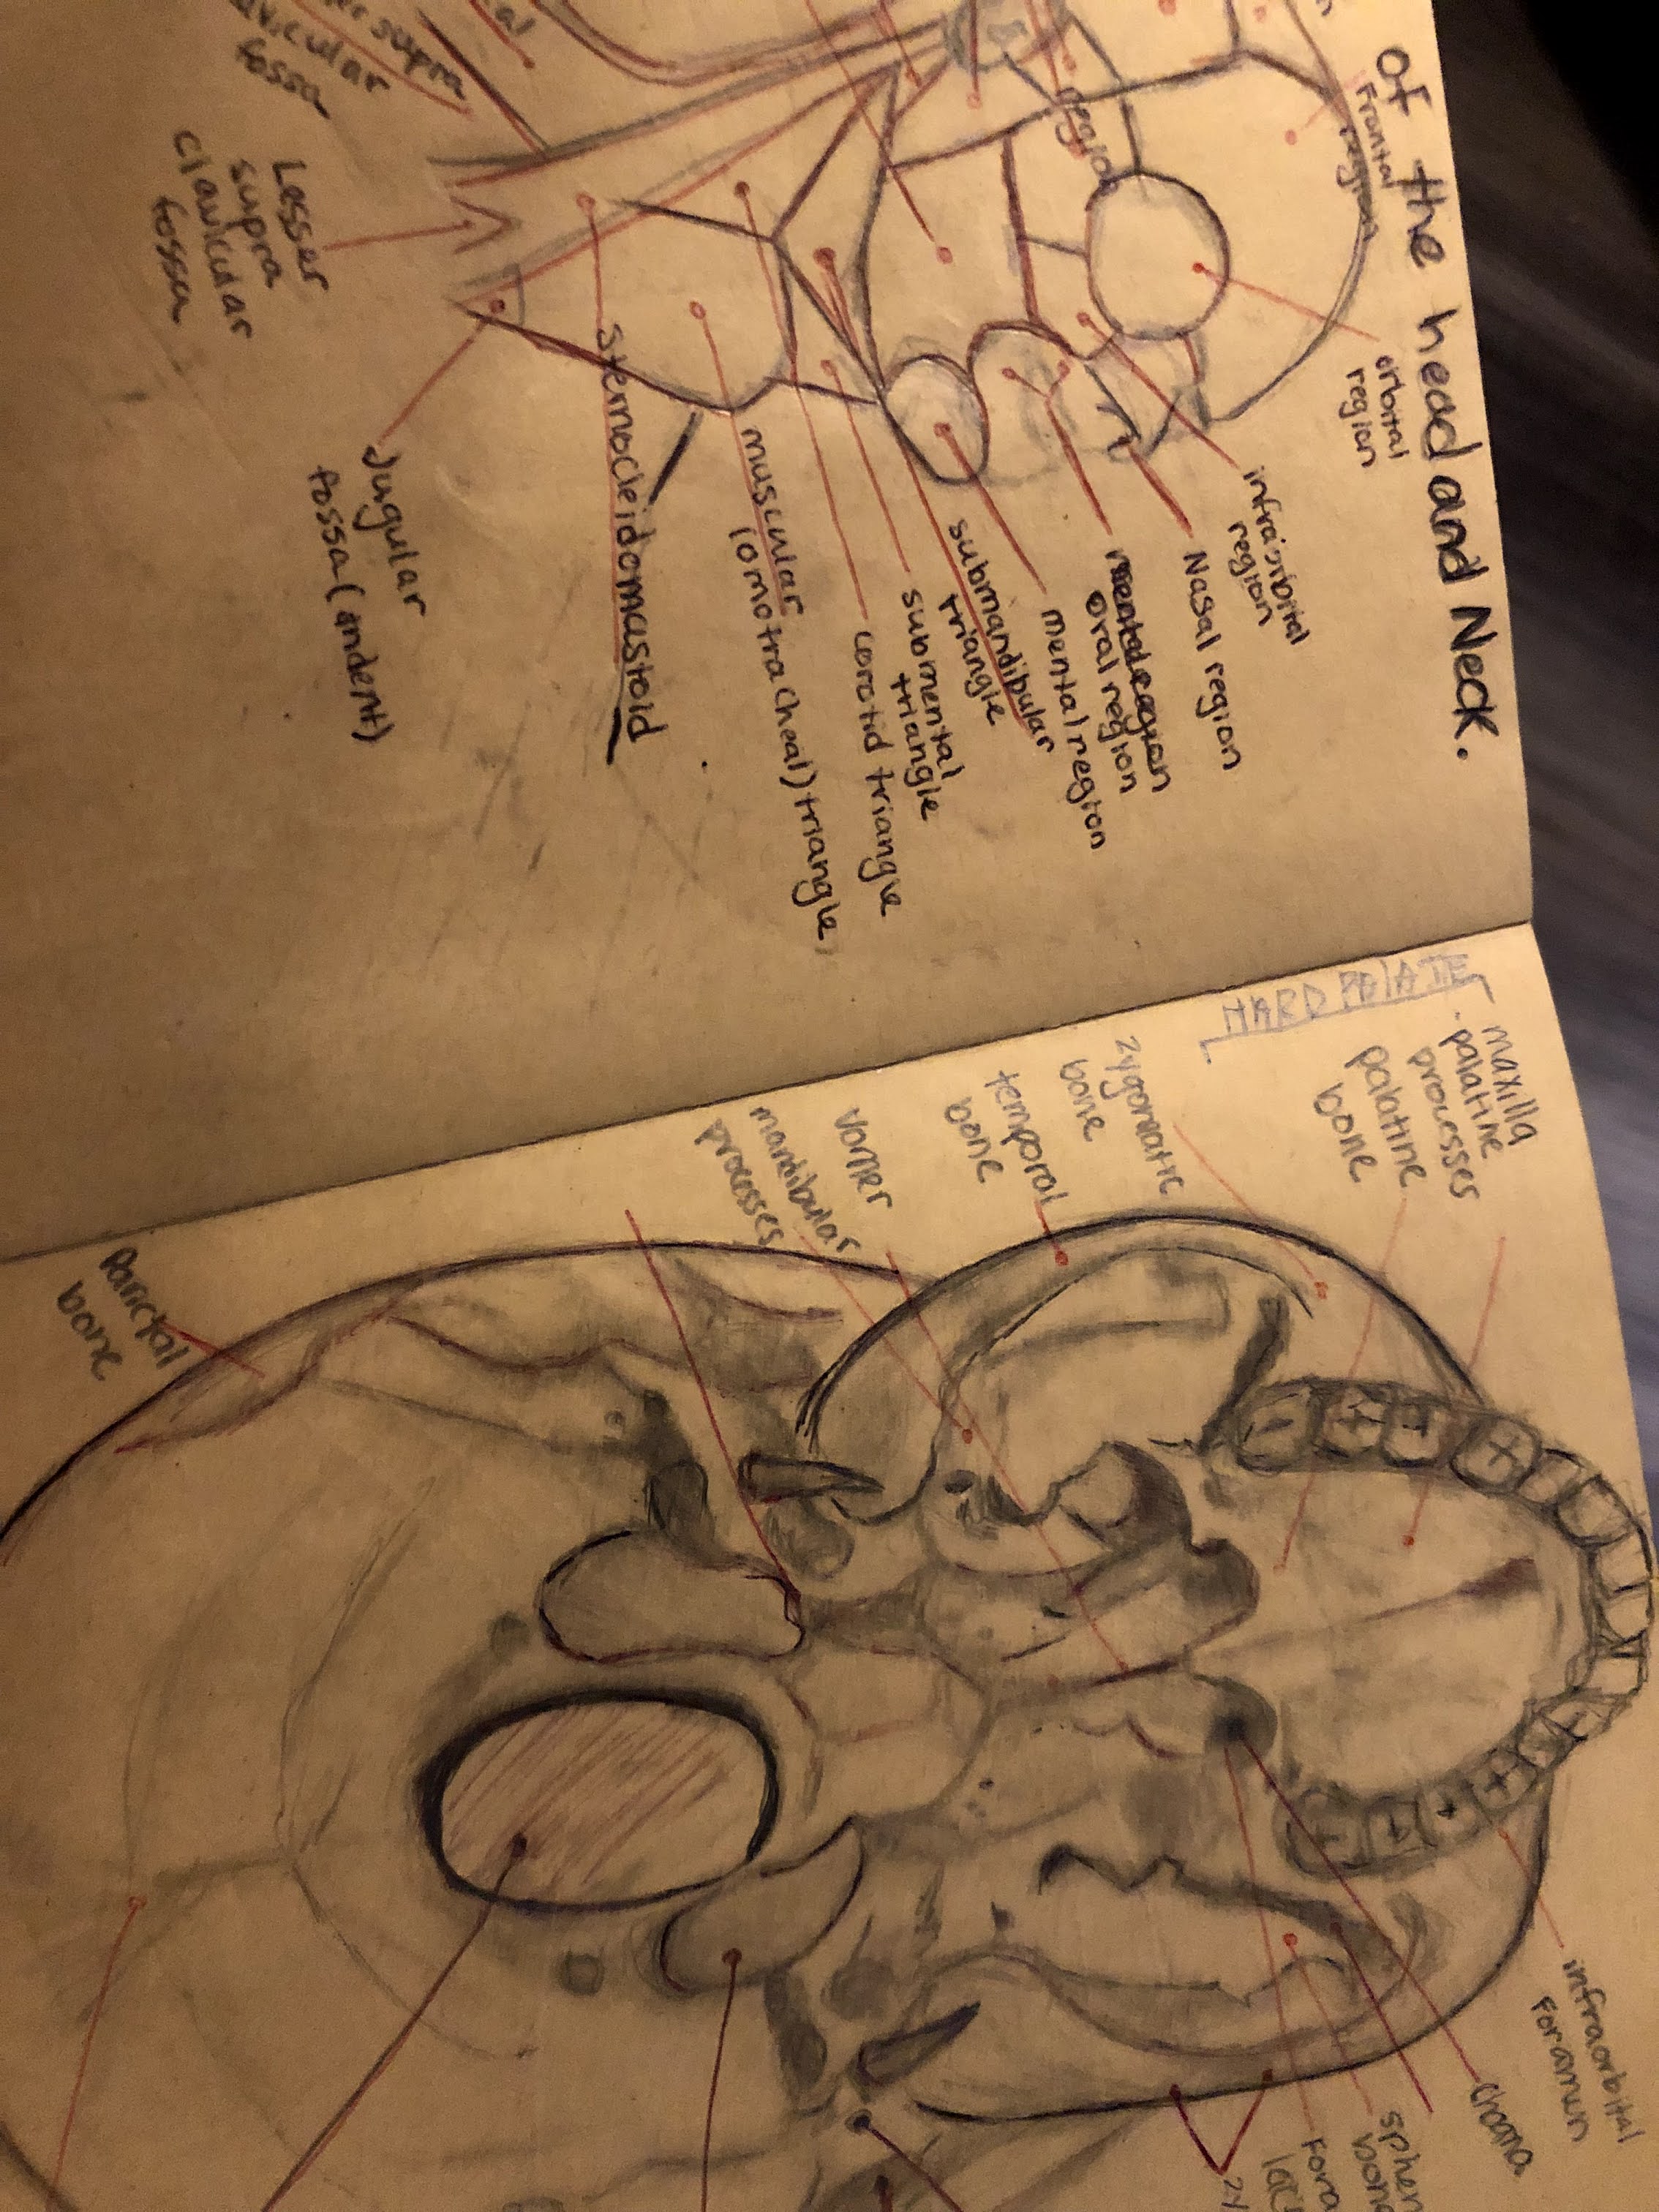 of the head and Neck.
Frontal
region
orbital
region
infraorbital
region
Nasal region
mental region
oral region
mental region
region
submandibular
triangle
submental
triangle
corotid triangle
muscular
(omotra(heal) triangle
sternocleidomastoid
Jugular
fossa (indent)
Lesser
supra
clavicular
fossa
supra
fossa
HARD PALATE
maxilla
palatine
processes
palatine
bone
zygomatic
bone
temporal
bone
vomer
mandibular
processes
Parietal
bone
infraorbital
Foramen
Choana
sphen
bone
Fora
lac
zy